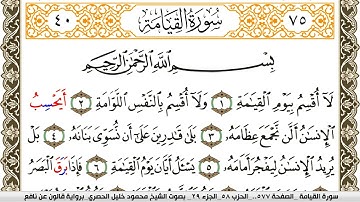 ٤٠ سُورَةُ القِيَامَةِ ٧٥
بِسْمِ اللَّهِ الرَّحْمَٰنِ الرَّحِيمِ
لَآ أُقْسِمُ بِيَوْمِ اِ۬لْقِيَٰمَةِ ١ وَلَآ أُقْسِمُ بِالنَّفْسِ اِ۬للَّوَّامَةِ ٢ أَيَحْسِبُ
اُ۬لْإِنسَٰنُ أَلَّن نَّجْمَعَ عِظَامَهُۥ ٣ بَلَىٰ قَٰدِرِينَ عَلَىٰٓ أَن نُّسَوِّيَ بَنَانَهُۥ ٤ بَلْ
يُرِيدُ اُ۬لْإِنسَٰنُ لِيَفْجُرَ أَمَامَهُۥ ٥ يَسْـَٔلُ أَيَّانَ يَوْمُ اُ۬لْقِيَٰمَةِ ٦ فَإِذَا بَرَقَ اَ۬لْبَصَرُ
سورة القيامة _الصفحة ٥٧٧_ الحزب ٥٨_ الجزء ٢٩_ بصوت الشيخ محمود خليل الحصري_ برواية قالون عن نافع